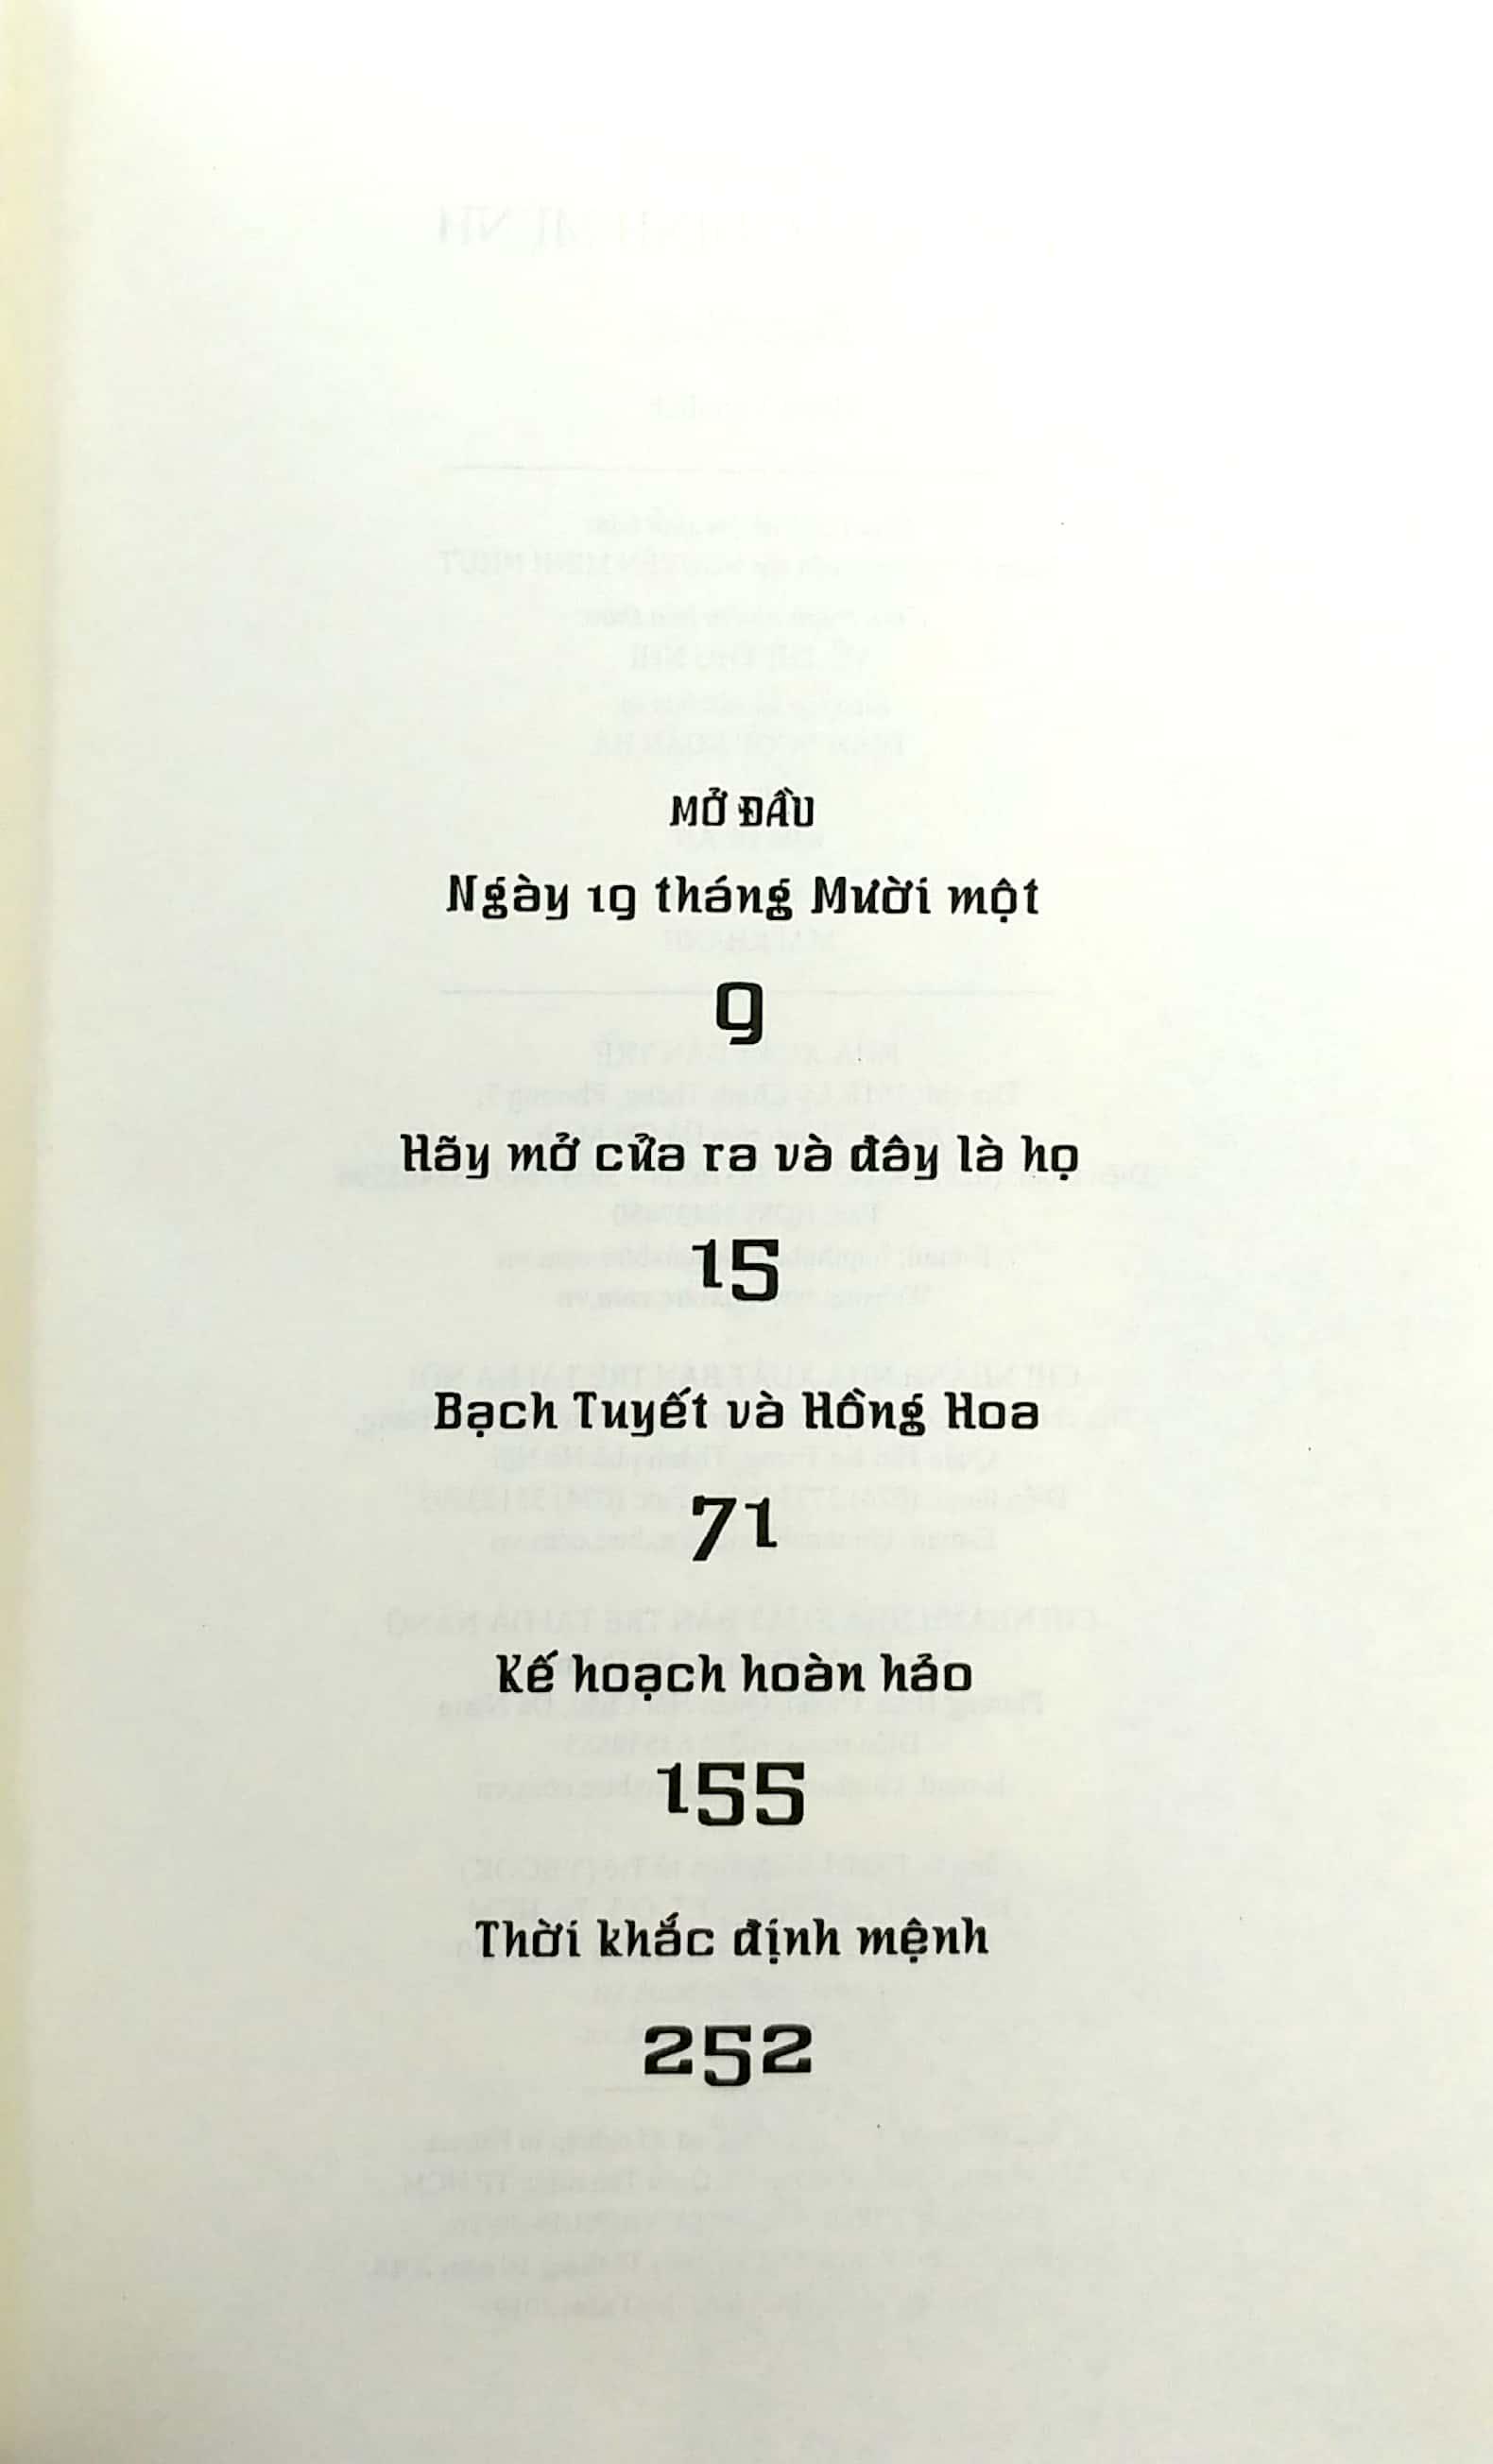 MỞ ĐẦU
Ngày 19 tháng Mười một
9
Hãy mở cửa ra và đây là họ
15
Bạch Tuyết và Hồng Hoa
71
Kế hoạch hoàn hảo
155
Thời khắc định mệnh
252